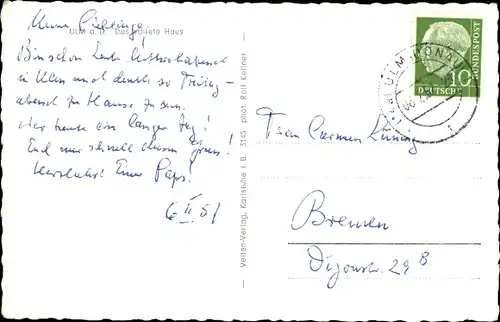 Meine Lieblinge,
ULM a. D. Das schiefe Haus
Bin schon heute Mittwochabend
in Ulm und denke so Freitag-
abend zu Hause zu sein.
War heute ein langer Tag!
Und nur schnell diesen Gruss!
Herzlichst Euer Paps!
6 II 57
Velten-Verlag, Karlsruhe i. B. 3145 phot. Rolf Kellner
ULM (DONAU)
10
DEUTSCHE
BUNDESPOST
Frau Carmen
Bremen
Dijonstr. 29 B